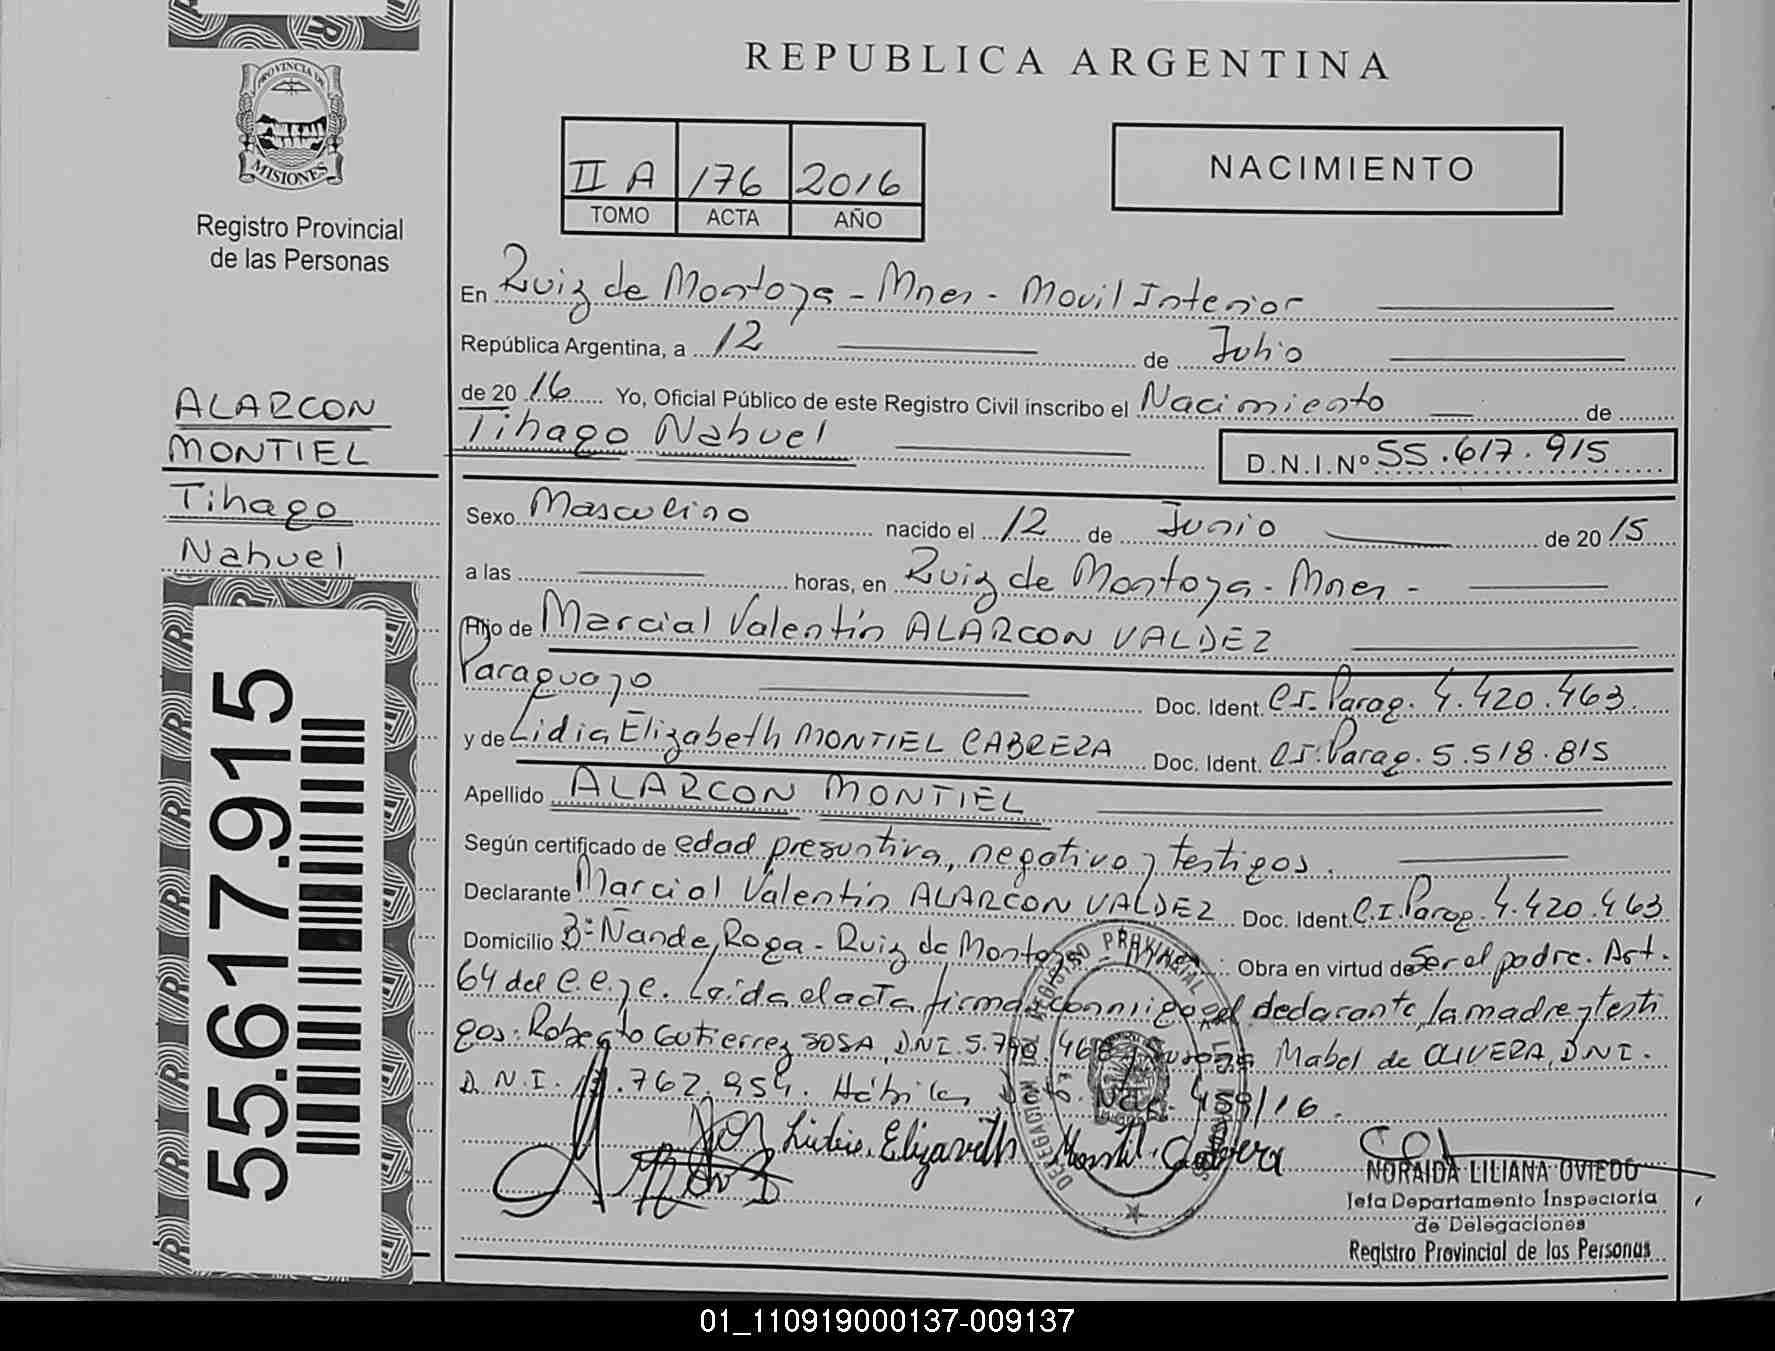 PROVINCIA DE
MISIONES
Registro Provincial
de las Personas
REPUBLICA ARGENTINA
II A 176 2016
TOMO ACTA AÑO
NACIMIENTO
En Ruiz de Montoya - Mnes - Movil Interior
República Argentina, a 12 de Julio
de 2016 Yo, Oficial Público de este Registro Civil inscribo el Nacimiento de
Tihago Nahuel D.N.I.Nº 55.617.915
ALARCON
MONTIEL
Tihago
Nahuel
55.617.915
Sexo Masculino nacido el 12 de Junio de 2015
a las horas, en Ruiz de Montoya - Mnes -
Hijo de Marcial Valentín ALARCON VALDEZ
Paraguayo Doc. Ident. C.I. Parag. 4.420.463
y de Lidia Elizabeth MONTIEL CABRERA Doc. Ident. C.I. Parag. 5.518.815
Apellido ALARCON MONTIEL
Según certificado de edad presuntiva, negativo y testigos.
Declarante Marcial Valentín ALARCON VALDEZ Doc. Ident. C.I. Parag. 4.420.463
Domicilio Bº Ñande Roga - Ruiz de Montoya Obra en virtud de Ser el padre. Art.
64 del C.C. y C. Leída el acta firman conmigo el declarante, la madre y testi
gos: Roberto Gutierrez SOSA, DNI. 5.790.468 y Mabel de OLIVERA, DNI.
D.N.I. .762.954. 459/16.
Lidia Elizabeth Montiel Cabrera
NORAIDA LILIANA OVIEDO
Jefa Departamento Inspectoría
de Delegaciones
Registro Provincial de las Personas
01_110919000137-009137